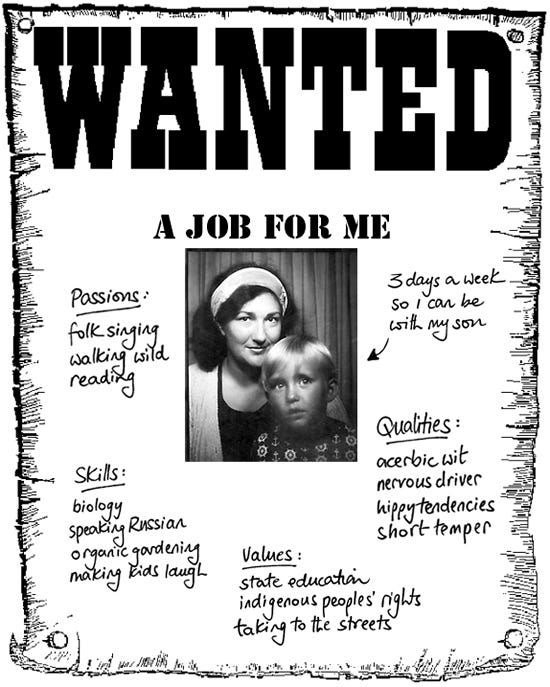 WANTED
A JOB FOR ME
3 days a week
so i can be
with my son
Passions:
folk singing
walking wild
reading
Qualities:
acerbic wit
nervous driver
hippy tendencies
short temper
Skills:
biology
speaking Russian
organic gardening
making kids laugh
Values:
state education
indigenous peoples' rights
taking to the streets